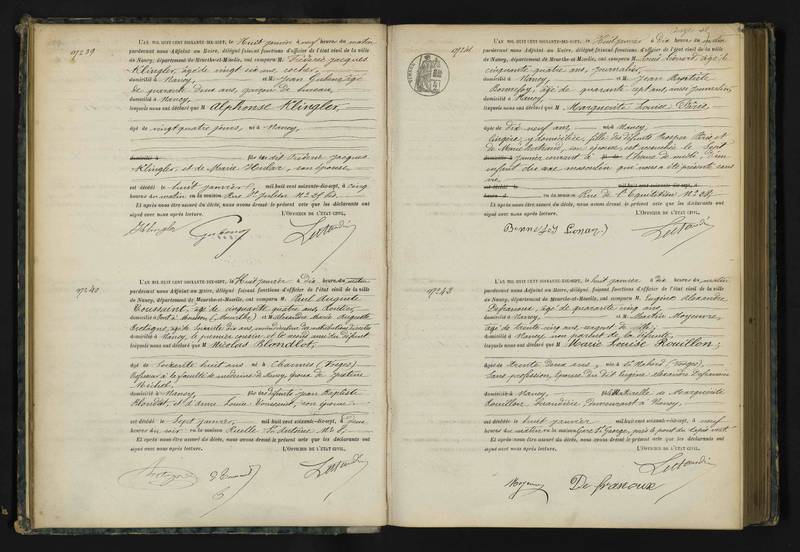 No 239
L'AN MIL HUIT CENT SOIXANTE-DIX-SEPT, le Huit janvier à neuf heures du matin
pardevant nous Adjoint au Maire, délégué faisant fonctions d'officier de l'état civil de la ville
de Nancy, département de Meurthe-et-Moselle, ont comparu M. Frédéric Jacques
Klingler, âgé de vingt six ans, cocher,
domicilié à Nancy, et M. Jean
de quarante deux ans, garçon de bureau,
domicilié à Nancy,
lesquels nous ont déclaré que M Alphonse Klingler,
âgé de vingt quatre jours, né à Nancy,
domicilié à fils du dit Frédéric Jacques
Klingler, et de Marie son épouse
est décédé le huit janvier mil huit cent soixante-dix-sept, à cinq
heures du matin en la maison Rue St Julien No 25 bis.
Et après nous être assuré du décès, nous avons dressé le présent acte que les déclarants ont
signé avec nous après lecture. L'OFFICIER DE L'ÉTAT CIVIL,
Klingler
No 240
L'AN MIL HUIT CENT SOIXANTE-DIX-SEPT, le Huit janvier à Dix heures du matin
pardevant nous Adjoint au Maire, délégué faisant fonctions d'officier de l'état civil de la ville
de Nancy, département de Meurthe-et-Moselle, ont comparu M. Paul Auguste
Toussaint, âgé de cinquante quatre ans,
domicilié à Pont à Mousson, (Meurthe) et M. Alexandre Marie Auguste
Bretagne, âgé de soixante dix ans,
domicilié à Nancy, le premier cousin et le second ami du défunt
lesquels nous ont déclaré que M Nicolas Blondlot,
âgé de soixante huit ans né à Charmes (Vosges)
Professeur à la faculté de médecine de Nancy, époux de
Michel
domicilié à Nancy, fils des défunts Jean Baptiste
Blondlot, et d'Anne Louise Toussaint, son épouse
est décédé le Sept janvier, mil huit cent soixante-dix-sept, à
heures du soir en la maison Ruelle No 8,
Et après nous être assuré du décès, nous avons dressé le présent acte que les déclarants ont
signé avec nous après lecture. L'OFFICIER DE L'ÉTAT CIVIL,
Bretagne
No 241
L'AN MIL HUIT CENT SOIXANTE-DIX-SEPT, le Huit janvier à Dix heures du matin
pardevant nous Adjoint au Maire, délégué faisant fonctions d'officier de l'état civil de la ville
de Nancy, département de Meurthe-et-Moselle, ont comparu M. Louis Lonard, âgé de
cinquante quatre ans, journalier,
domicilié à Nancy, et M. Jean Baptiste
Bonnefoy, âgé de quarante sept ans, journalier,
domicilié à Nancy,
lesquels nous ont déclaré que M Marguerite Louise
âgée de dix neuf ans, née à Nancy,
lingère, y domiciliée, fille des défunts Prosper et
de Marie Bertrand, son épouse, est accouchée le Sept
janvier courant à heure de d'un
enfant du sexe masculin qui nous a été présenté sans
vie
est décédé mil huit cent soixante-dix-sept, à
heures d en la maison Rue de l'Equitation No 28,
Et après nous être assuré du décès, nous avons dressé le présent acte que les déclarants ont
signé avec nous après lecture. L'OFFICIER DE L'ÉTAT CIVIL,
Bonnefoy Lonar
L'AN MIL HUIT CENT SOIXANTE-DIX-SEPT, le huit janvier à dix heures du matin
pardevant nous Adjoint au Maire, délégué faisant fonctions d'officier de l'état civil de la ville
de Nancy, département de Meurthe-et-Moselle, ont comparu M. Eugène Alexandre
Defranoux, âgé de quarante cinq ans,
domicilié à Nancy, et M. Martin
âgé de trente cinq ans, sergent de ville,
domicilié à Nancy non parent de la défunte
lesquels nous ont déclaré que M Marie Louise Rouillon;
âgée de trente deux ans, née à St Nabord (Vosges),
Sans profession, épouse du dit Eugène Alexandre Defranoux
domiciliée à Nancy, fille naturelle de Marguerite
Rouillon demeurant à Nancy,
est décédée le huit janvier mil huit cent soixante-dix-sept, à neuf
heures du matin en la maison St George, près le pont
Et après nous être assuré du décès, nous avons dressé le présent acte que les déclarants ont
signé avec nous après lecture. L'OFFICIER DE L'ÉTAT CIVIL,
Defranoux